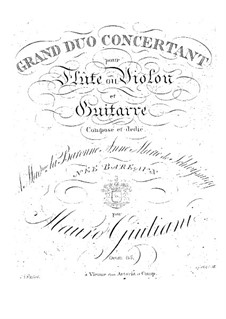 GRAND DUO CONCERTANT
pour
Flûte ou Violon
et
Guitarre
Composé et dedié
A Mad. la Baronne Anne Marie de
NÉE BARE
par
Mauro Giuliani
à Vienne chez Artaria et Comp.